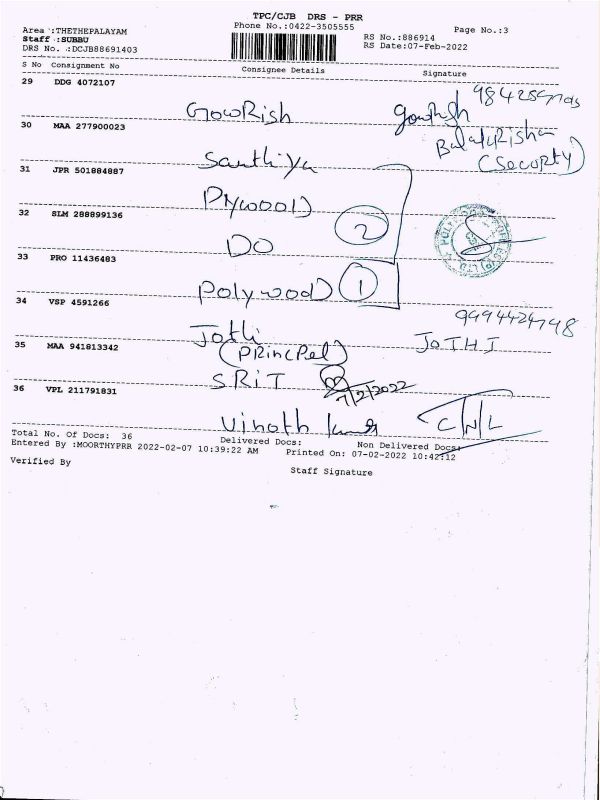 TPC/CJB DRS - PRR
Area :THETHEPALAYAM
Phone No.:0422-3505555
Page No.:3
Staff :SUBBU
RS No.:886914
DRS No. :DCJB88691403
RS Date:07-Feb-2022
S No Consignment No Consignee Details Signature
29 DDG 4072107
GOWRish
30 MAA 277900023
Santhiya
(Security)
31 JPR 501884887
Plywood
32 SLM 288899136
2
DO
33 PRO 11436483
Polywood 1
34 VSP 4591266
Jothi
(Principal)
9994424798
JOTHI
35 MAA 941813342
SRiT
7/2/2022
36 VPL 211791831
Vinoth kumar
C/N/L
Total No. Of Docs: 36 Delivered Docs: Non Delivered Docs:
Entered By :MOORTHYPRR 2022-02-07 10:39:22 AM Printed On: 07-02-2022 10:42:12
Verified By
Staff Signature